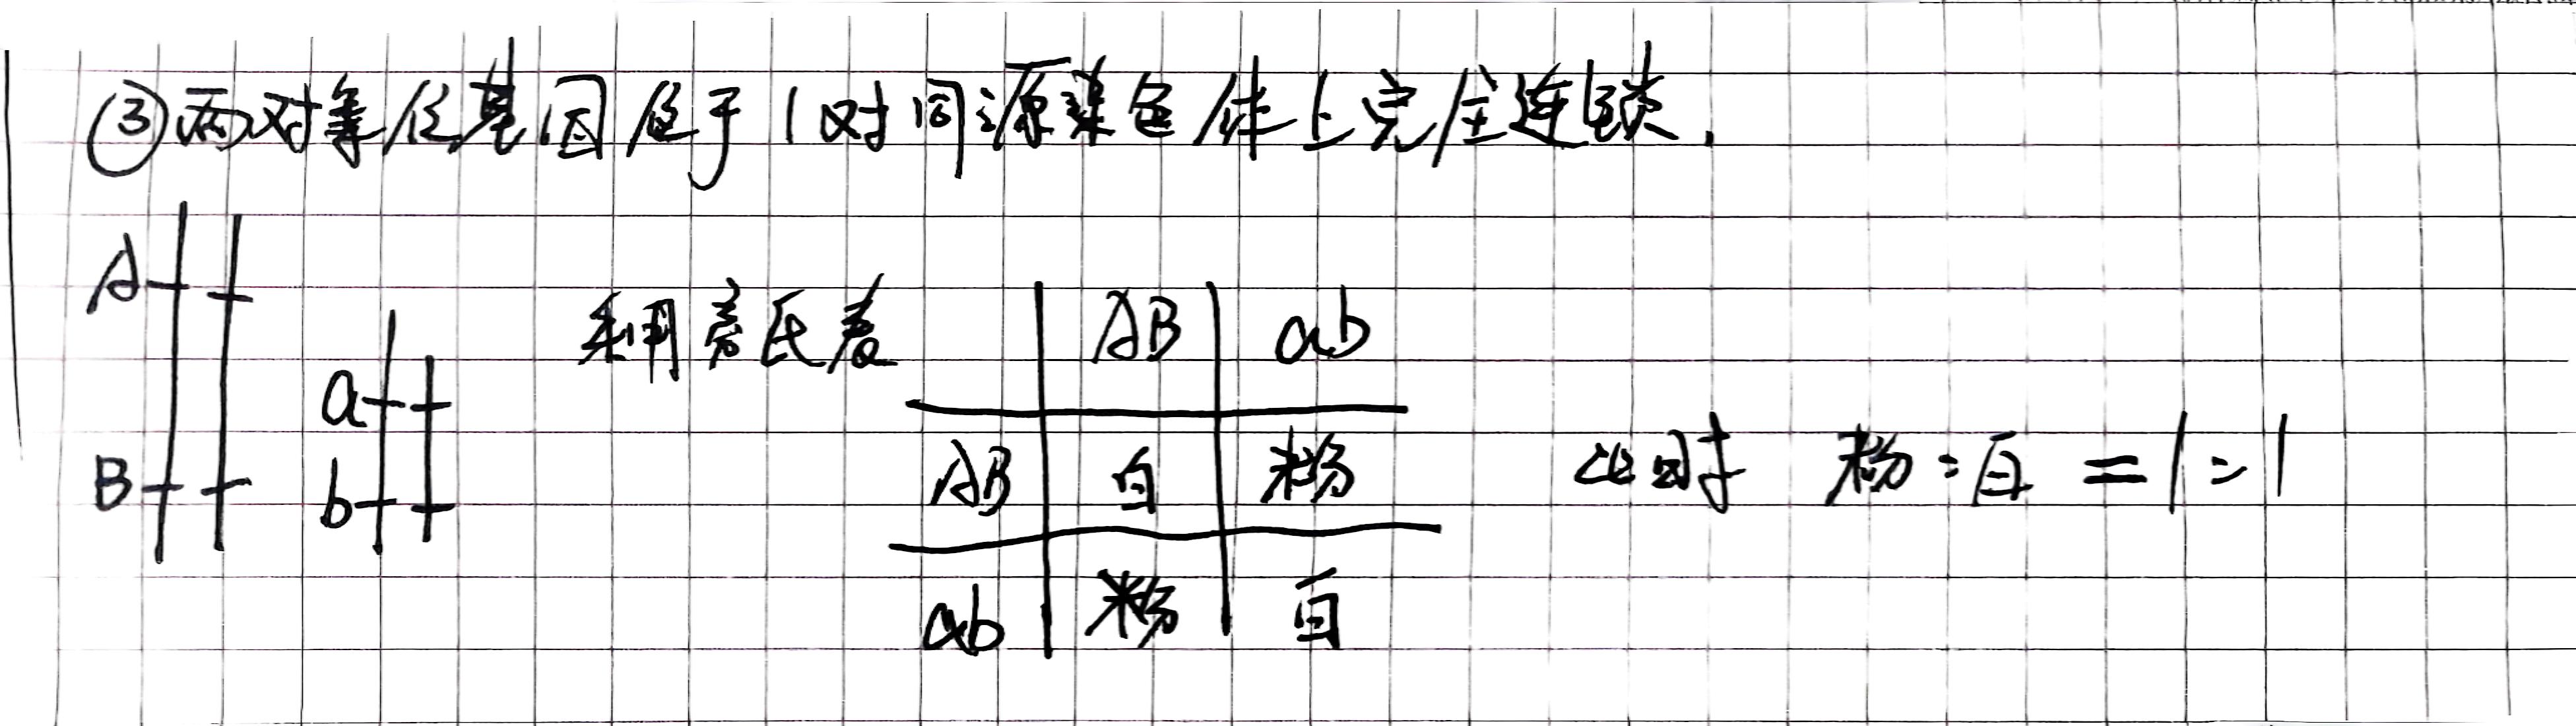 ③两对等位基因位于1对同源染色体上完全连锁.
A
B
a
b
利用旁氏表
AB ab
AB 白 粉
ab 粉 白
此时 粉:白=1:1